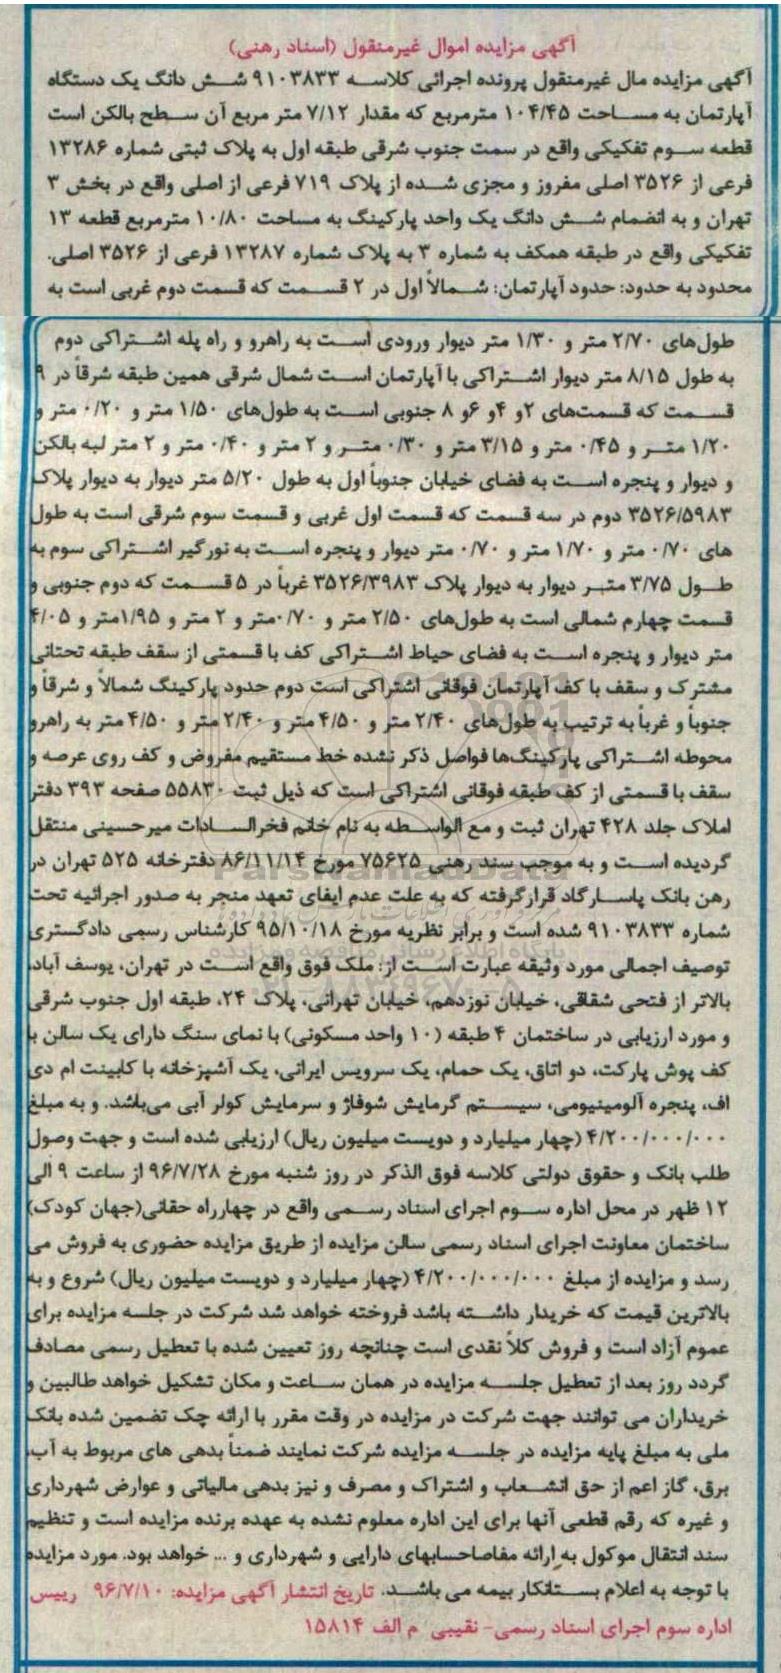 آگهی مزایده اموال غیرمنقول (اسناد رهنی)
آگهی مزایده مال غیرمنقول پرونده اجرائی کلاسه ۹۱۰۳۸۳۳ شش دانگ یک دستگاه
آپارتمان به مساحت ۱۰۴/۴۵ مترمربع که مقدار ۷/۱۲ متر مربع آن سطح بالکن است
قطعه سوم تفکیکی واقع در سمت جنوب شرقی طبقه اول به پلاک ثبتی شماره ۱۳۲۸۶
فرعی از ۳۵۲۶ اصلی مفروز و مجزی شده از پلاک ۷۱۹ فرعی از اصلی واقع در بخش ۳
تهران و به انضمام شش دانگ یک واحد پارکینگ به مساحت ۱۰/۸۰ مترمربع قطعه ۱۳
تفکیکی واقع در طبقه همکف به شماره ۳ به پلاک شماره ۱۳۲۸۷ فرعی از ۳۵۲۶ اصلی.
محدود به حدود: حدود آپارتمان: شمالاً اول در ۲ قسمت که قسمت دوم غربی است به
طول‌های ۲/۷۰ متر و ۱/۳۰ متر دیوار ورودی است به راهرو و راه پله اشتراکی دوم
به طول ۸/۱۵ متر دیوار اشتراکی با آپارتمان است شمال شرقی همین طبقه شرقاً در ۹
قسمت که قسمت‌های ۲و ۴و ۶و ۸ جنوبی است به طول‌های ۱/۵۰ متر و ۰/۲۰ متر و
۱/۲۰ متر و ۰/۴۵ متر و ۳/۱۵ متر و ۰/۳۰ متر و ۲ متر و ۰/۴۰ متر و ۲ متر لبه بالکن
و دیوار و پنجره است به فضای خیابان جنوباً اول به طول ۵/۲۰ متر دیوار به دیوار پلاک
۳۵۲۶/۵۹۸۳ دوم در سه قسمت که قسمت اول غربی و قسمت سوم شرقی است به طول
های ۰/۷۰ متر و ۱/۷۰ متر و ۰/۷۰ متر دیوار و پنجره است به نورگیر اشتراکی سوم به
طول ۳/۷۵ متر دیوار به دیوار پلاک ۳۵۲۶/۳۹۸۳ غرباً در ۵ قسمت که دوم جنوبی و
قسمت چهارم شمالی است به طول‌های ۲/۵۰ متر و ۰/۷۰متر و ۲ متر و ۱/۹۵متر و ۴/۰۵
متر دیوار و پنجره است به فضای حیاط اشتراکی کف با قسمتی از سقف طبقه تحتانی
مشترک و سقف با کف آپارتمان فوقانی اشتراکی است دوم حدود پارکینگ شمالاً و شرقاً و
جنوباً و غرباً به ترتیب به طول‌های ۲/۴۰ متر و ۴/۵۰ متر و ۲/۴۰ متر و ۴/۵۰ متر به راهرو
محوطه اشتراکی پارکینگ‌ها فواصل ذکر نشده خط مستقیم مفروض و کف روی عرصه و
سقف با قسمتی از کف طبقه فوقانی اشتراکی است که ذیل ثبت ۵۵۸۳۰ صفحه ۳۹۳ دفتر
املاک جلد ۴۲۸ تهران ثبت و مع الواسطه به نام خانم فخرالسادات میرحسینی منتقل
گردیده است و به موجب سند رهنی ۷۵۶۲۵ مورخ ۸۶/۱۱/۱۴ دفترخانه ۵۲۵ تهران در
رهن بانک پاسارگاد قرارگرفته که به علت عدم ایفای تعهد منجر به صدور اجرائیه تحت
شماره ۹۱۰۳۸۳۳ شده است و برابر نظریه مورخ ۹۵/۱۰/۱۸ کارشناس رسمی دادگستری
توصیف اجمالی مورد وثیقه عبارت است از: ملک فوق واقع است در تهران، یوسف آباد،
بالاتر از فتحی شقاقی، خیابان نوزدهم، خیابان تهرانی، پلاک ۲۴، طبقه اول جنوب شرقی
و مورد ارزیابی در ساختمان ۴ طبقه (۱۰ واحد مسکونی) با نمای سنگ دارای یک سالن با
کف پوش پارکت، دو اتاق، یک حمام، یک سرویس ایرانی، یک آشپزخانه با کابینت ام دی
اف، پنجره آلومینیومی، سیستم گرمایش شوفاژ و سرمایش کولر آبی می‌باشد. و به مبلغ
۴/۲۰۰/۰۰۰/۰۰۰ (چهار میلیارد و دویست میلیون ریال) ارزیابی شده است و جهت وصول
طلب بانک و حقوق دولتی کلاسه فوق الذکر در روز شنبه مورخ ۹۶/۷/۲۸ از ساعت ۹ الی
۱۲ ظهر در محل اداره سوم اجرای اسناد رسمی واقع در چهارراه حقانی(جهان کودک)
ساختمان معاونت اجرای اسناد رسمی سالن مزایده از طریق مزایده حضوری به فروش می
رسد و مزایده از مبلغ ۴/۲۰۰/۰۰۰/۰۰۰ (چهار میلیارد و دویست میلیون ریال) شروع و به
بالاترین قیمت که خریدار داشته باشد فروخته خواهد شد شرکت در جلسه مزایده برای
عموم آزاد است و فروش کلاً نقدی است چنانچه روز تعیین شده با تعطیل رسمی مصادف
گردد روز بعد از تعطیل جلسه مزایده در همان ساعت و مکان تشکیل خواهد طالبین و
خریداران می توانند جهت شرکت در مزایده در وقت مقرر با ارائه چک تضمین شده بانک
ملی به مبلغ پایه مزایده در جلسه مزایده شرکت نمایند ضمناً بدهی های مربوط به آب،
برق، گاز اعم از حق انشعاب و اشتراک و مصرف و نیز بدهی مالیاتی و عوارض شهرداری
و غیره که رقم قطعی آنها برای این اداره معلوم نشده به عهده برنده مزایده است و تنظیم
سند انتقال موکول به ارائه مفاصاحسابهای دارایی و شهرداری و ... خواهد بود. مورد مزایده
با توجه به اعلام بستانکار بیمه می باشد. تاریخ انتشار آگهی مزایده: ۹۶/۷/۱۰ رییس
اداره سوم اجرای اسناد رسمی- نقیبی م الف ۱۵۸۱۴